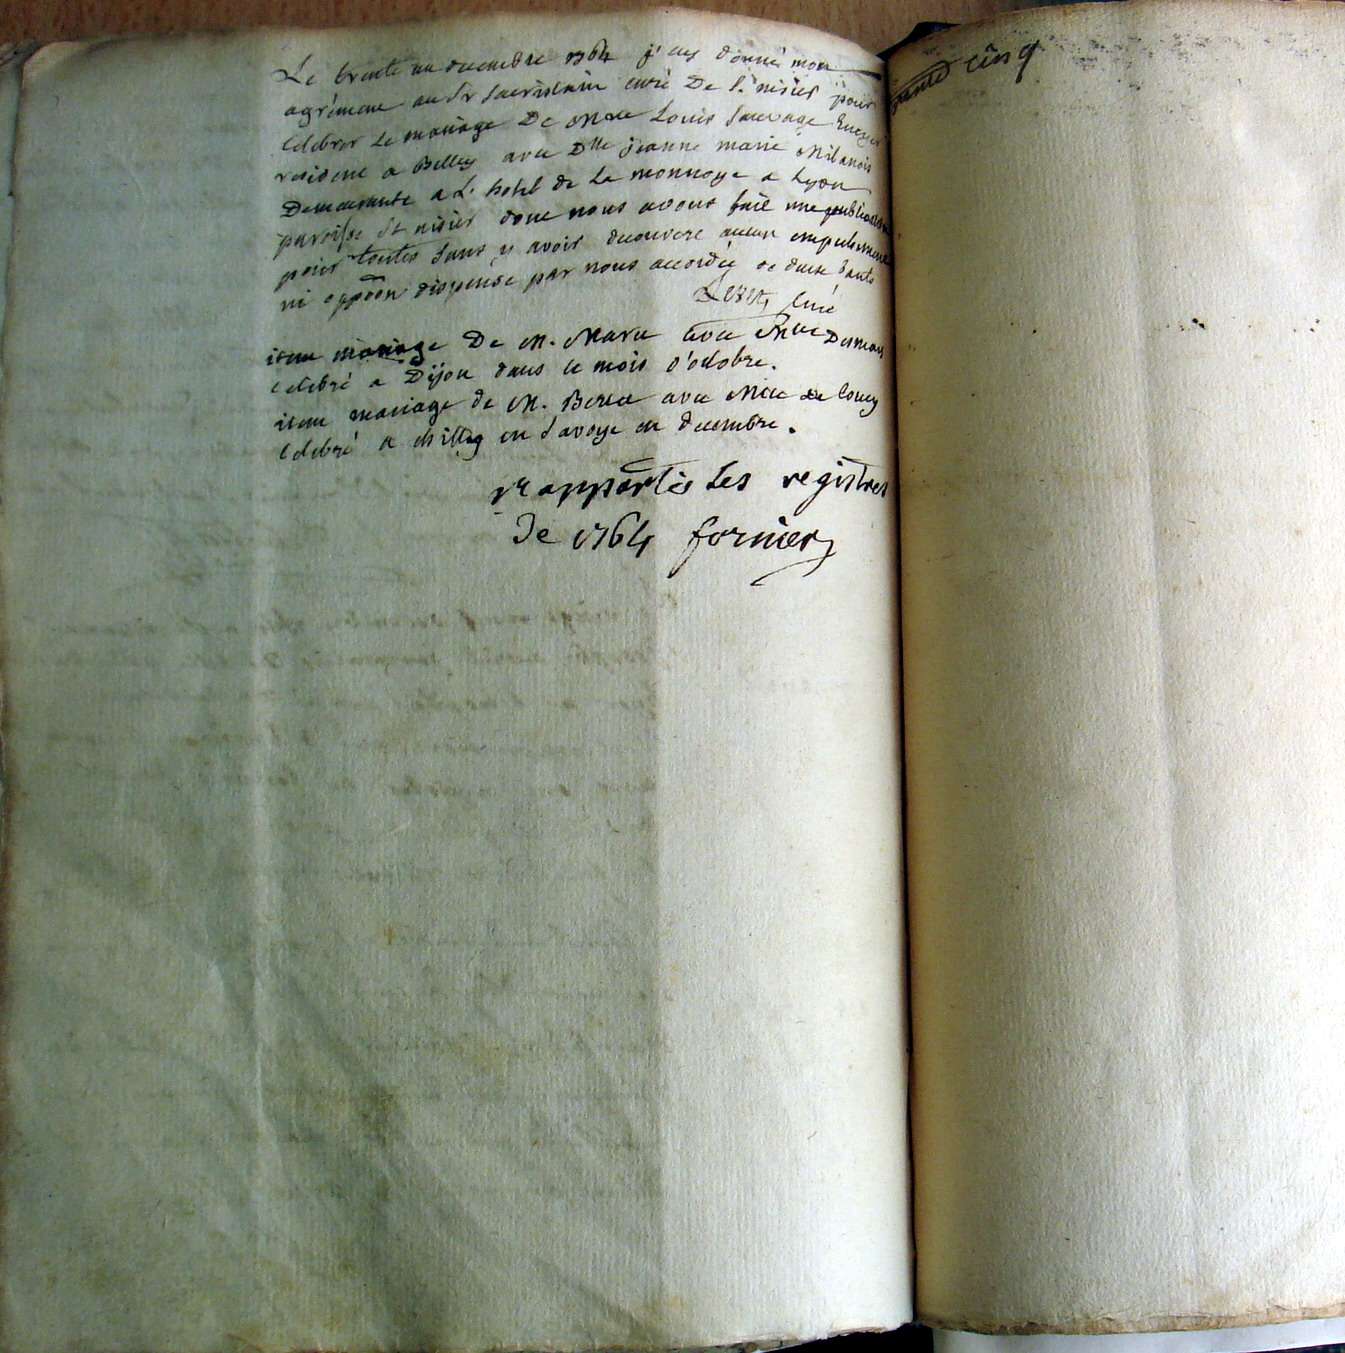 Le trente un decembre 1764 j'ay donné mon
agrément au Sr sacristain curé De St nisier pour
celebrer Le mariage De Mre Louis Sauvage
resident a Belley avec Dlle jeanne marie Milanois
Demeurante a L'hotel de La monnoye a Lyon
paroisse St nisier dont nous avons fait une publication
pour toutes sans y avoir decouvert aucun empechement
ni oppôon dispense par nous accordée de deux bants
curé
item mariage De M. avec Mlle
celebré a Dijon dans le mois d'octobre.
item mariage de M. avec Mlle de
celebré a en Savoye en decembre.
rapportés Les registres
De 1764 fornier
cinq